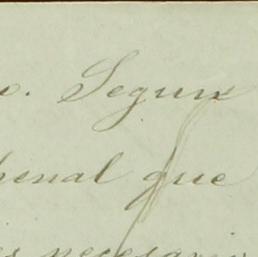 o. Segun
henal que
es necesario